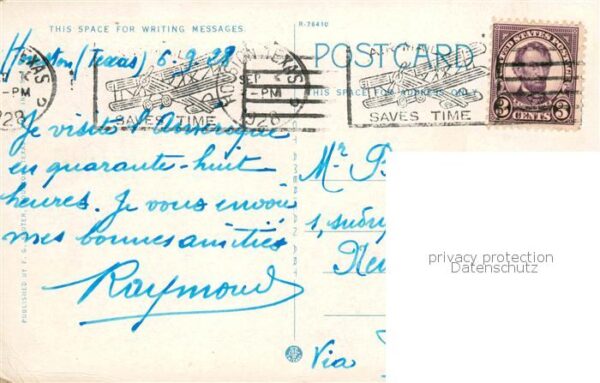 THIS SPACE FOR WRITING MESSAGES
R-76410
Houston (Texas) 6.9.28
POSTCARD
THIS SPACE FOR ADDRESS ONLY
TEXAS
SEP
PM
1928
SAVES TIME
SAVES TIME
UNITED STATES POSTAGE
3 CENTS 3
Je visite l'Amérique
en quarante-huit
heures. Je vous envoie
mes bonnes amitiés
Raymond
Mr
1,
Via
PUBLISHED BY
privacy protection
Datenschutz